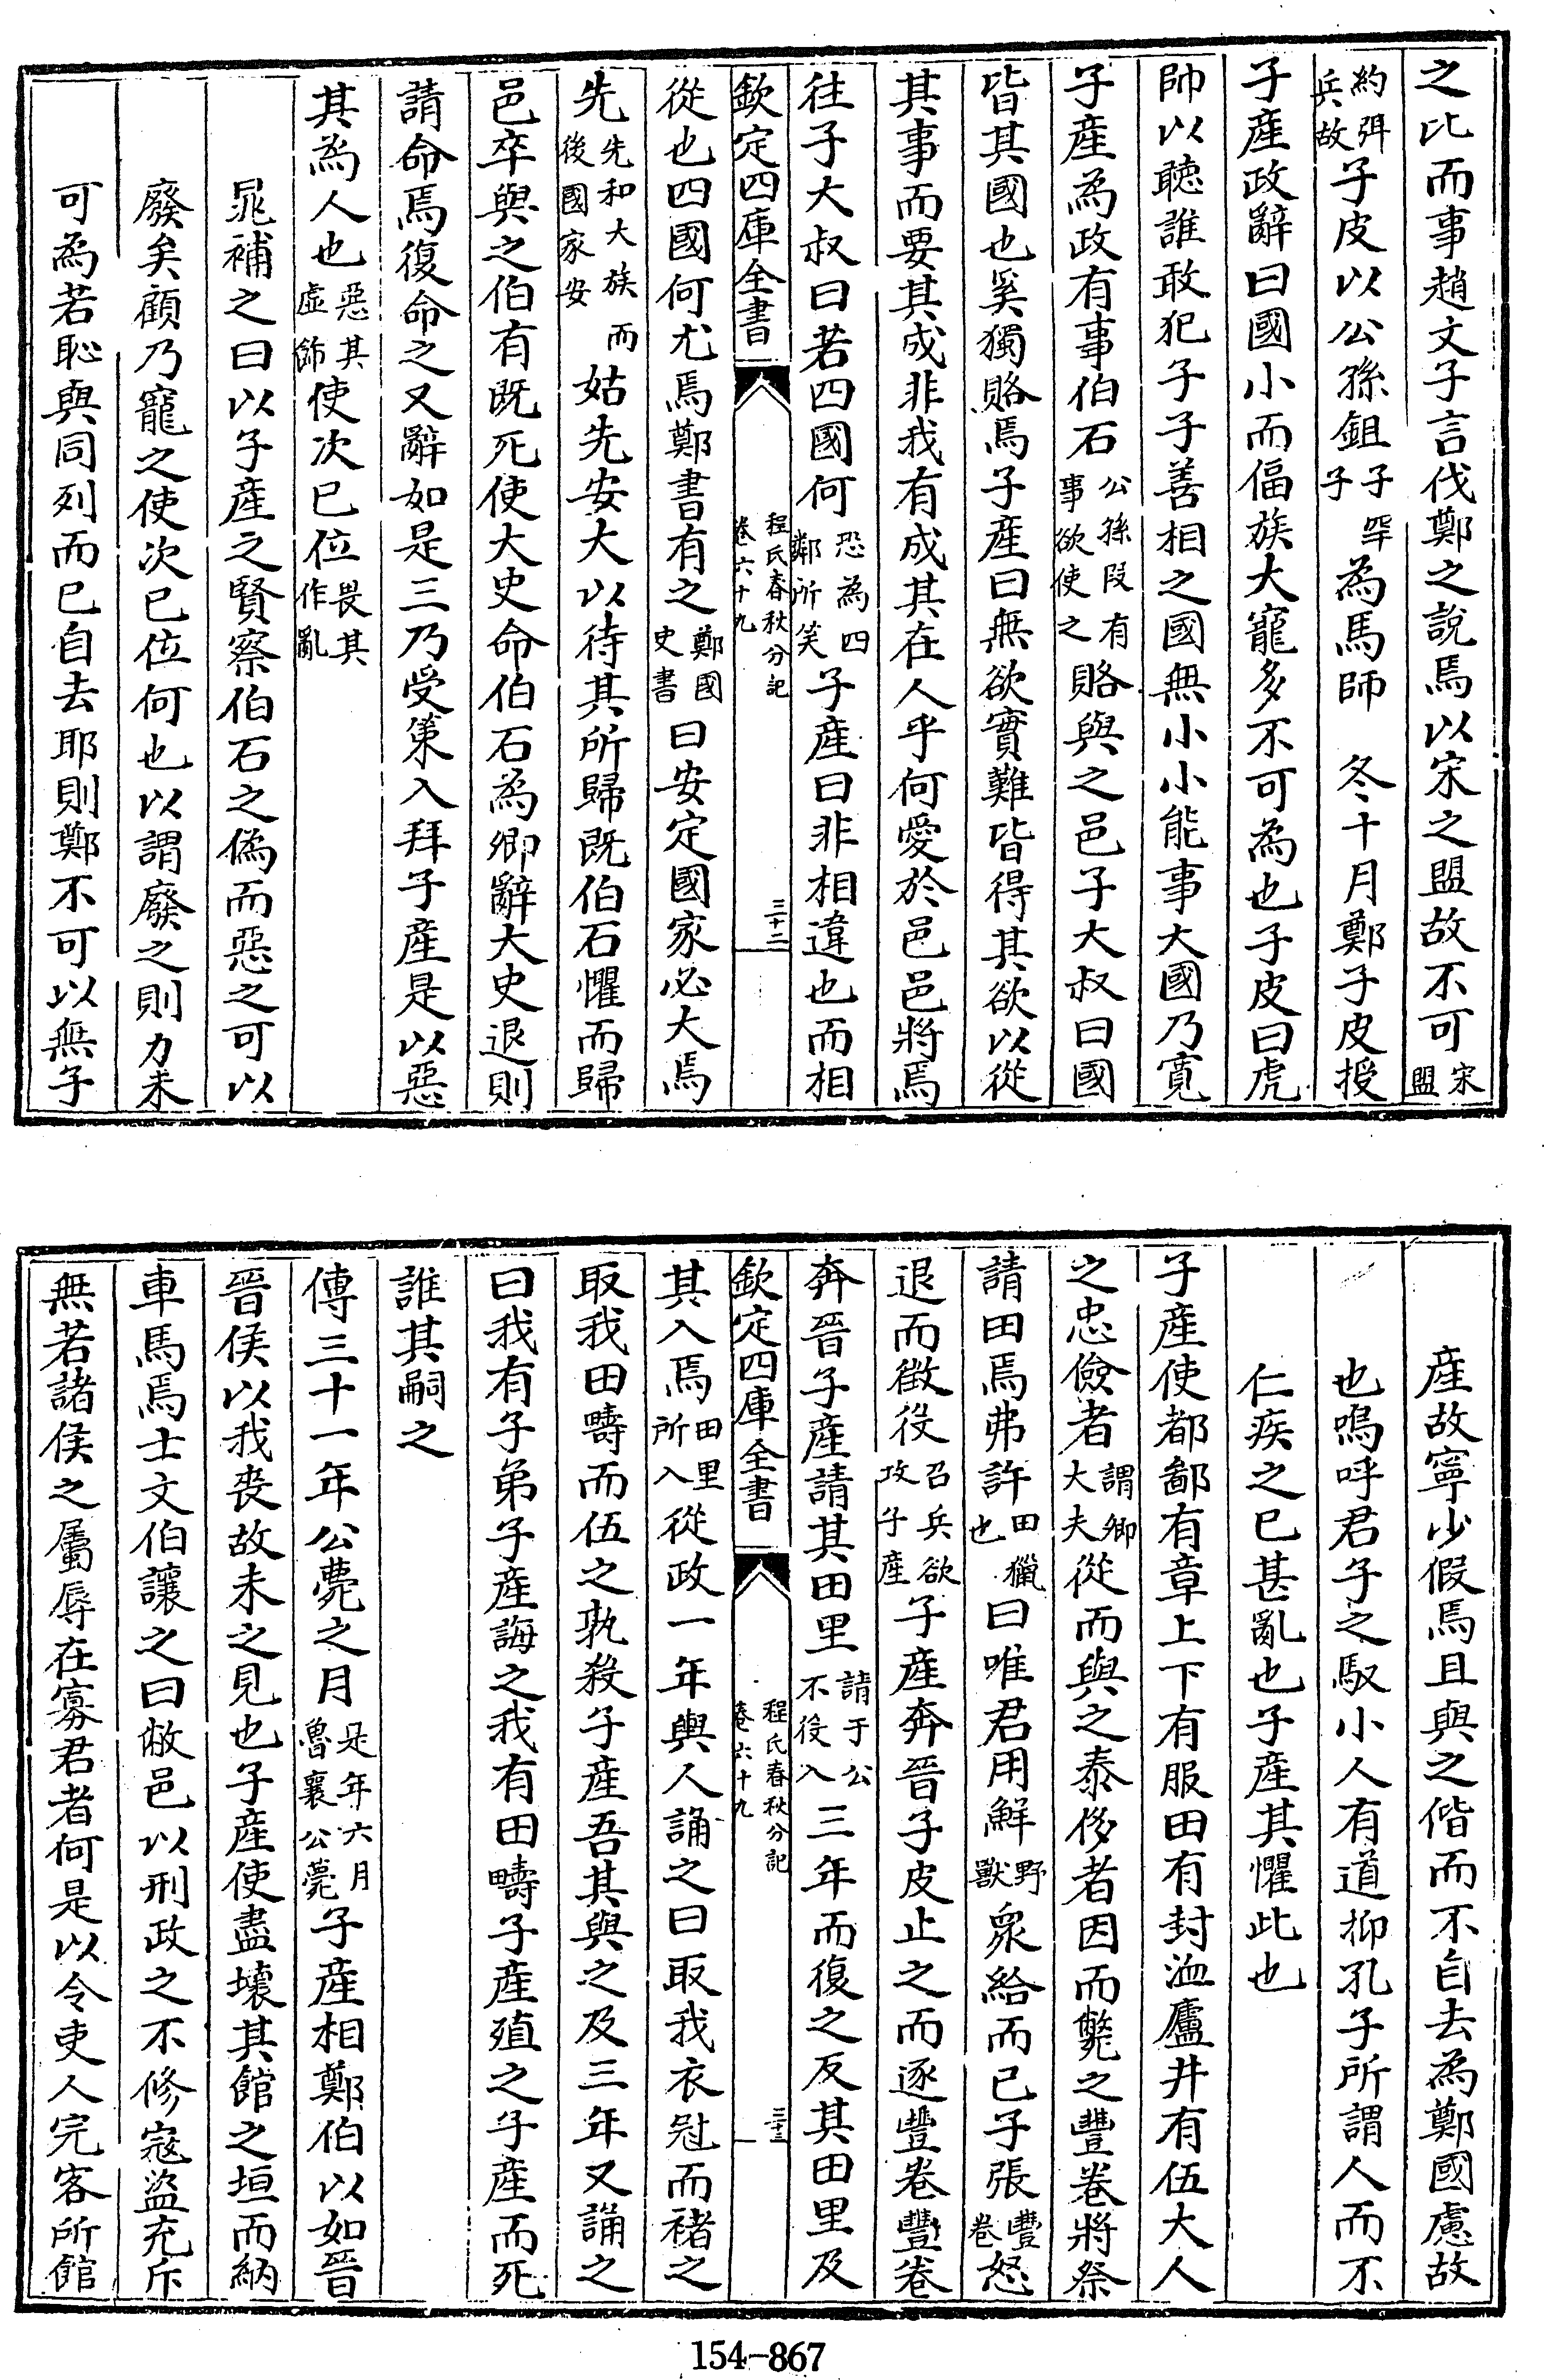 之比而事趙文子言伐鄭之説焉以宋之盟故不可宋盟
約弭兵故子皮以公孫鉏子罕子為馬師　冬十月鄭子皮授
子產政辭曰國小而偪族大寵多不可為也子皮曰虎
帥以聽誰敢犯子子善相之國無小小能事大國乃寛
子產為政有事伯石公孫段有事欲使之賂與之邑子大叔曰國
皆其國也奚獨賂焉子產曰無欲實難皆得其欲以從
其事而要其成非我有成其在人乎何愛於邑邑將焉
往子大叔曰若四國何恐為四鄰所笑子產曰非相違也而相
欽定四庫全書　程氏春秋分記卷六十九　三十二
從也四國何尤焉鄭書有之鄭國史書曰安定國家必大焉
先先和大族而後國家安姑先安大以待其所歸既伯石懼而歸
邑卒與之伯有既死使大史命伯石為卿辭大史退則
請命焉復命之又辭如是三乃受策入拜子產是以惡
其為人也惡其虛飾使次已位畏其作亂
晁補之曰以子產之賢察伯石之偽而惡之可以
廢矣顧乃寵之使次已位何也以謂廢之則力未
可為若恥與同列而已自去耶則鄭不可以無子
產故寧少假焉且與之偕而不自去為鄭國慮故
也嗚呼君子之馭小人有道抑孔子所謂人而不
仁疾之已甚亂也子產其懼此也
子產使都鄙有章上下有服田有封洫廬井有伍大人
之忠儉者謂卿大夫從而與之泰侈者因而斃之豐卷將祭
請田焉弗許田獵也曰唯君用鮮野獸衆給而已子張豐卷怒
退而徵役召兵欲攻子產子產奔晉子皮止之而逐豐卷豐卷
奔晉子產請其田里請于公不役入三年而復之反其田里及
欽定四庫全書　程氏春秋分記卷六十九　三十三
其入焉田里所入從政一年輿人誦之曰取我衣冠而褚之
取我田疇而伍之孰殺子產吾其與之及三年又誦之
曰我有子弟子產誨之我有田疇子產殖之子產而死
誰其嗣之
傳三十一年公薨之月是年六月魯襄公薨子產相鄭伯以如晉
晉侯以我喪故未之見也子產使盡壞其館之垣而納
車馬焉士文伯讓之曰敝邑以刑政之不修寇盜充斥
無若諸侯之屬辱在寡君者何是以令吏人完客所館
154-867